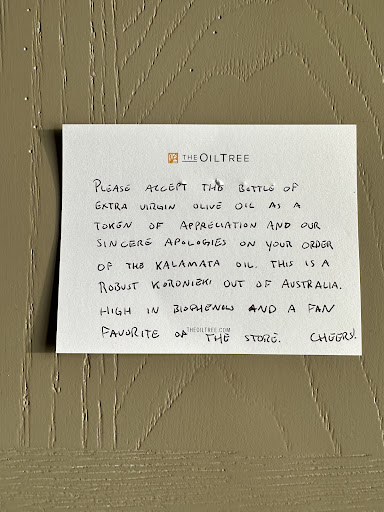 THE OILTREE
PLEASE ACCEPT THE BOTTLE OF
EXTRA VIRGIN OLIVE OIL AS A
TOKEN OF APPRECIATION AND OUR
SINCERE APOLOGIES ON YOUR ORDER
OF THE KALAMATA OIL. THIS IS A
ROBUST KORONIEKI OUT OF AUSTRALIA.
HIGH IN BIOPHENOLS AND A FAN
FAVORITE OF THE STORE. CHEERS!
THEOILTREE.COM